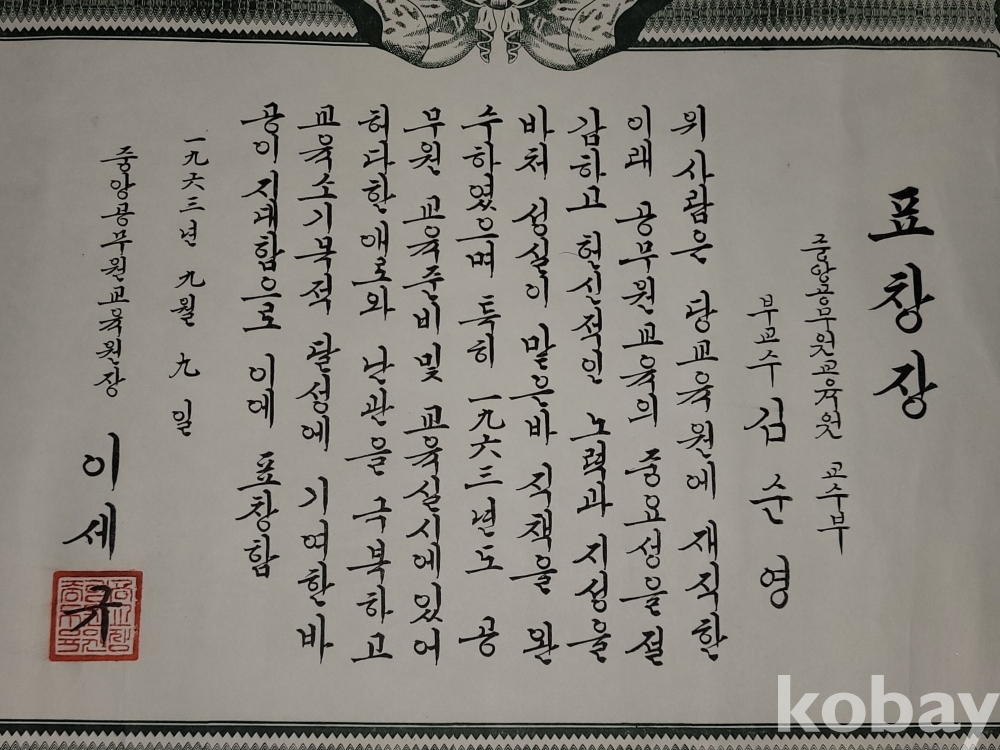 표창장
중앙공무원교육원 교수부
부교수 김순영
위 사람은 당교육원에 재직한
이래 공무원교육의 중요성을 절
감하고 헌신적인 노력과 지성을
바쳐 성실이 맡은바 직책을 완
수하였으며 특히 一九六三년도 공
무원 교육준비 및 교육실시에있어
허다한 애로와 난관을 극복하고
교육소기목적 달성에 기여한바
공이 지대함으로 이에 표창함
一九六三년 九월 九일
중앙공무원교육원장
이세규
kobay